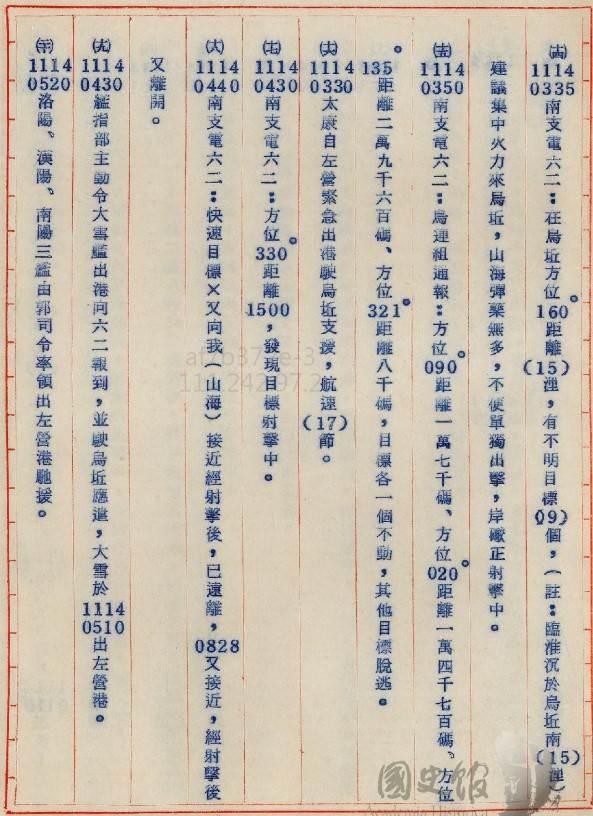 ㈭1114
0335南支電六二：在烏坵方位160°距離(15)浬，有不明目標(09)個，(註：臨淮沉於烏坵南(15)浬)
建議集中火力來烏坵，山海彈藥無多，不便單獨出擊，岸礮正射擊中。
1114
0350南支電六二：烏連組通報：方位090°距離一萬七千碼、方位020°距離一萬四千七百碼、方位
135°距離二萬九千六百碼、方位321°距離八千碼，目標各一個不動，其他目標脫逃。
1114
0330太康自左營緊急出港駛烏坵支援，航速(17)節。
1114
0430南支電六二：方位330°距離1500，發現目標射擊中。
1114
0440南支電六二：快速目標×又向我(山海)接近經射擊後，已遠離，0828又接近，經射擊後
又離開。
1114
0430艦指部主動令大雪艦出港向六二報到，並駛烏坵應遣，大雪於1114
0510出左營港。
1114
0520洛陽、漢陽、南陽三艦由郭司令率領出左營港馳援。
國史館